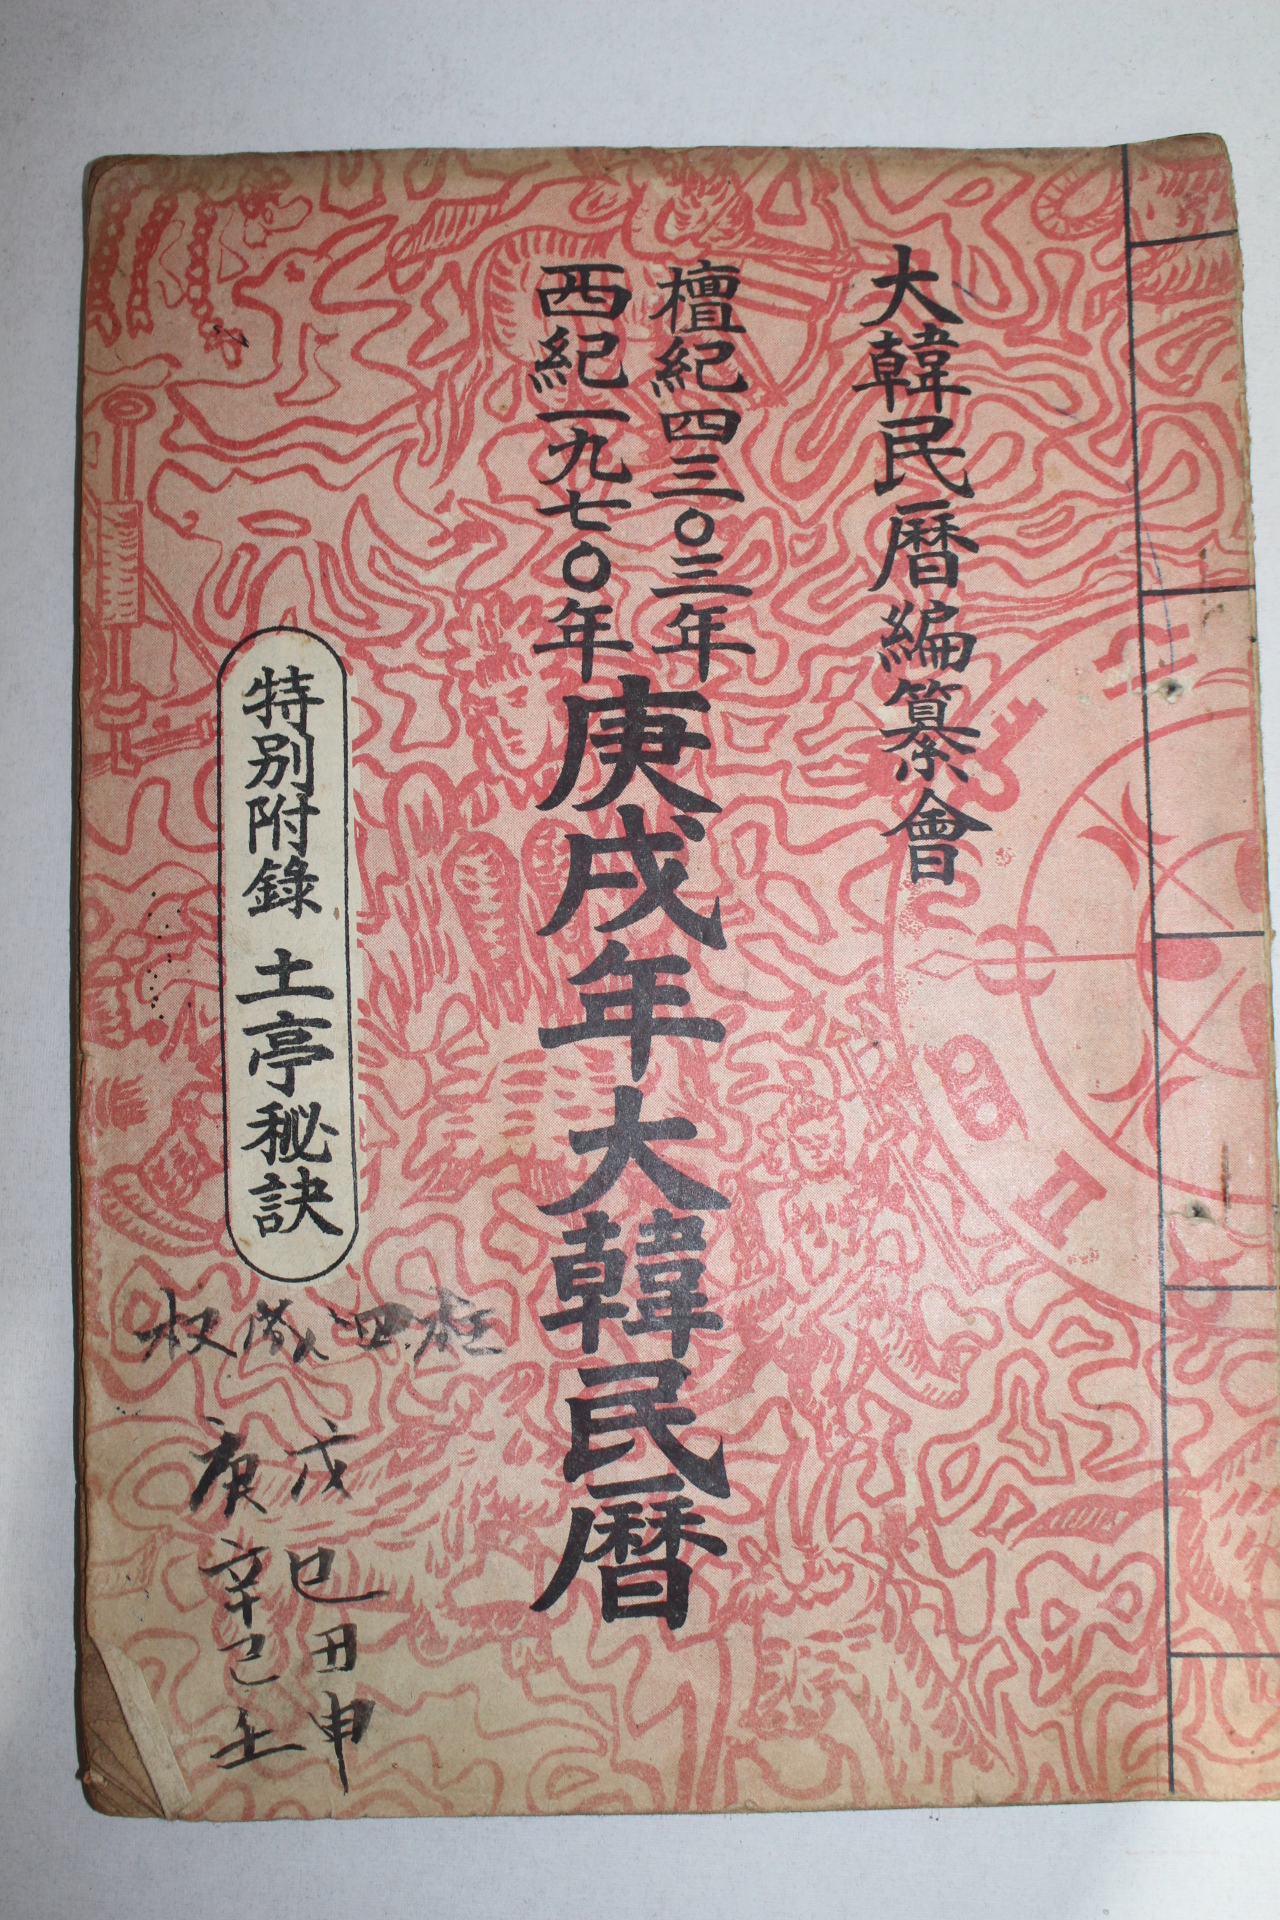 大韓民暦編纂會
檀紀四三〇三年
西紀一九七〇年
庚戌年大韓民暦
特別附錄 土亭秘訣
四柱
戊巳丑申
庚辛己